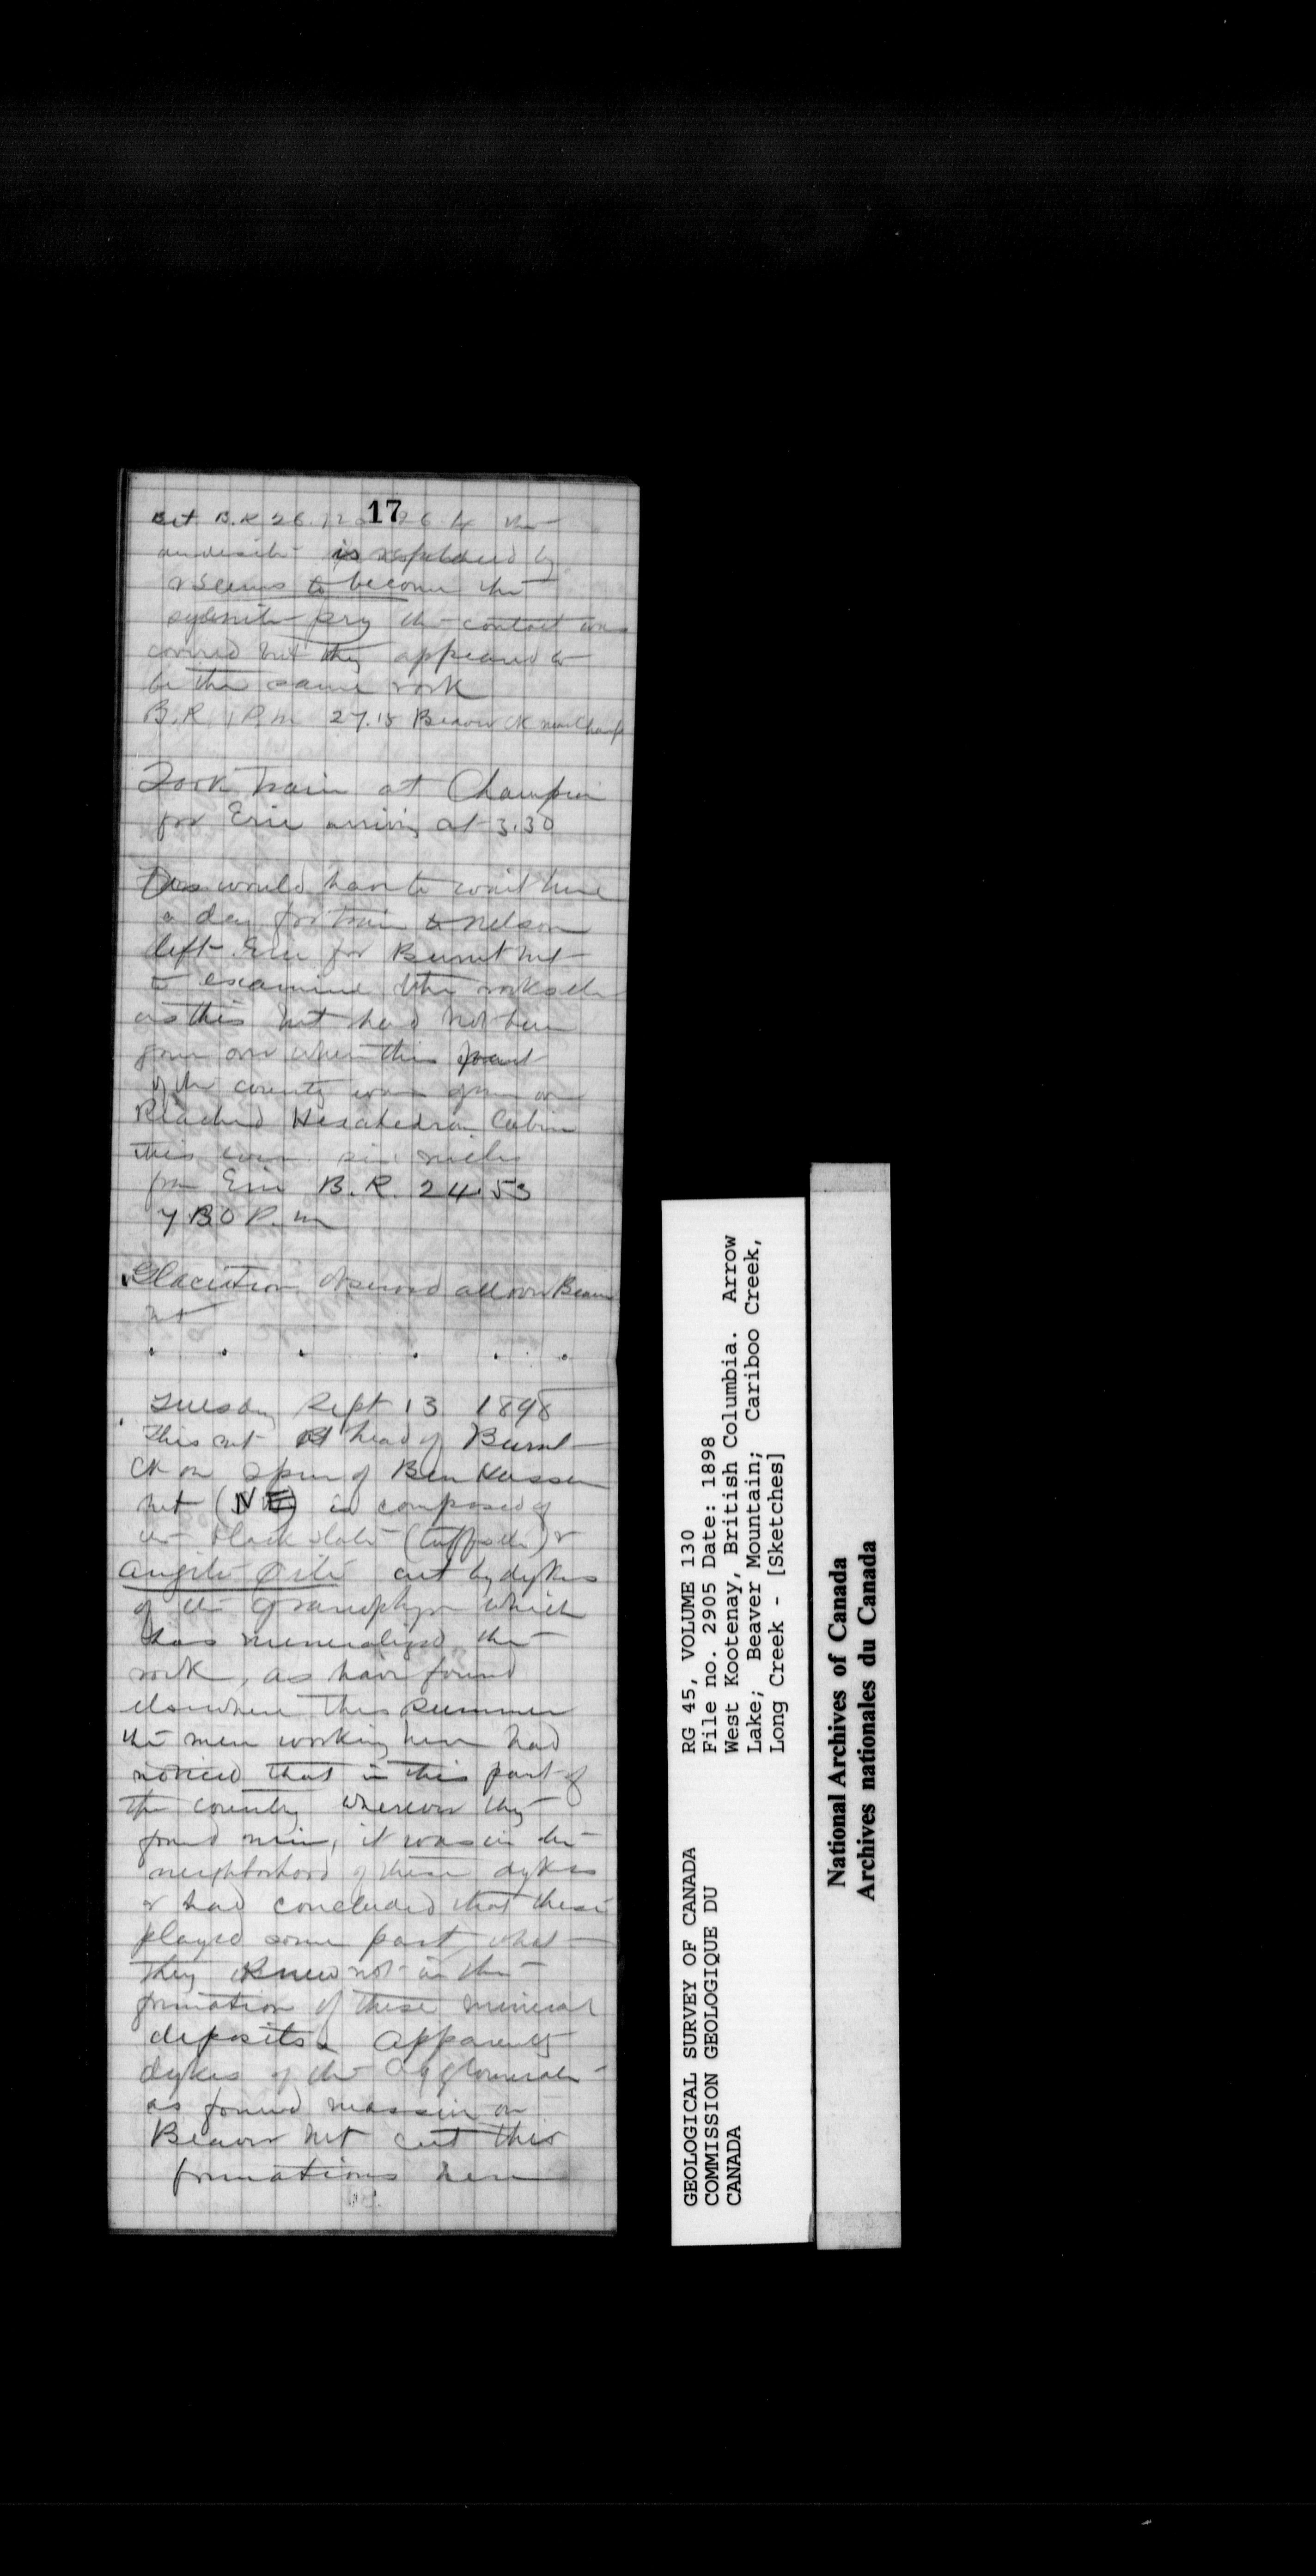 17
bet B.R 26.12 26.4 the
andesite is replaced by
& seems to become the
syenite pry the contact was
covered but they appeared to
be the same rock
B.R. 1 P.m 27.15 Beaver Ck near
Took train at Champion
for Erie arriving at 3.30
As would have to wait here
a day for train to Nelson
left Erie for Burnt Mt
to examine the rocks etc
as this Mt had not been
gone over when this part
of the country was gone over
Reached Hexahedron Cabin
this even. six miles
from Erie B.R. 24.53
7 30 P.m
Glaciation observed all over Beaver
Mt
Tuesday Sept 13 1898
This mt at head of Burnt
Ck on Spur of Ben Hassen
Mt (NE) is composed of
the black slate (tuffs etc) &
augite pite cut by dykes
of the granophyr which
has mineralized the
rock, as have found
elsewhere this summer
the men working here had
noticed that in this part of
the country wherever they
found min, it was in the
neighborhood of these dykes
& had concluded that these
played some part, what
they knew not in the
formation of these mineral
deposits. Apparently
dykes of the Agglomerate
as found massive on
Beaver Mt cut this
formations here
GEOLOGICAL SURVEY OF CANADA
COMMISSION GEOLOGIQUE DU
CANADA
RG 45, VOLUME 130
File no. 2905 Date: 1898
West Kootenay, British Columbia. Arrow
Lake; Beaver Mountain; Cariboo Creek,
Long Creek - [Sketches]
National Archives of Canada
Archives nationales du Canada